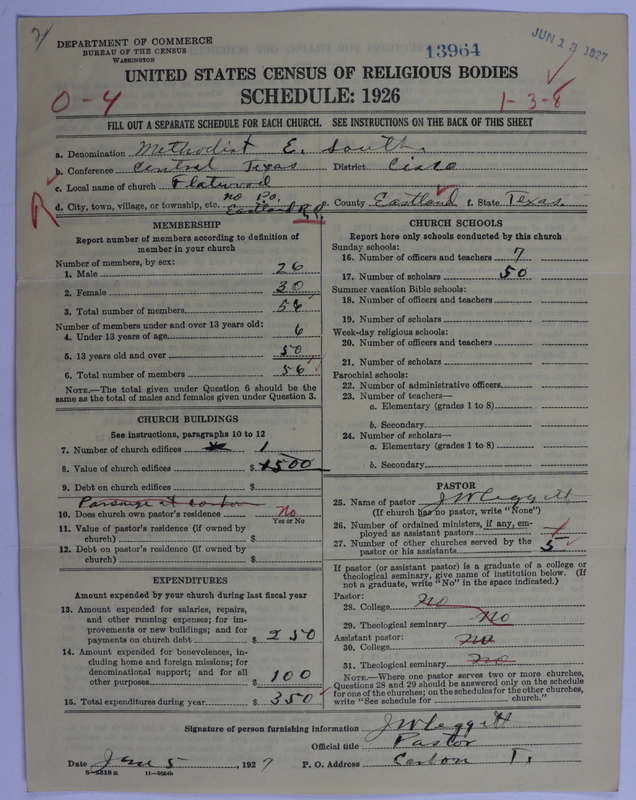 DEPARTMENT OF COMMERCE
BUREAU OF THE CENSUS
WASHINGTON
13964
JUN 13 1927
UNITED STATES CENSUS OF RELIGIOUS BODIES
SCHEDULE: 1926
0-4
1-3-8
FILL OUT A SEPARATE SCHEDULE FOR EACH CHURCH. SEE INSTRUCTIONS ON THE BACK OF THIS SHEET
a. Denomination Methodist E. South.
b. Conference Central Texas District Cisco
c. Local name of church Flatwood
no P.O.
d. City, town, village, or township, etc. Eastland R.R. e. County Eastland f. State Texas.
R
MEMBERSHIP
Report number of members according to definition of
member in your church
Number of members, by sex:
1. Male 26
2. Female 30
3. Total number of members 56
Number of members under and over 13 years old:
4. Under 13 years of age 6
5. 13 years old and over 50
6. Total number of members 56
NOTE.—The total given under Question 6 should be the
same as the total of males and females given under Question 3.
CHURCH BUILDINGS
See instructions, paragraphs 10 to 12
7. Number of church edifices 1
8. Value of church edifices $ 1500
9. Debt on church edifices $
Parsonage at Carbon
10. Does church own pastor's residence No
Yes or No
11. Value of pastor's residence (if owned by
church) $
12. Debt on pastor's residence (if owned by
church) $
EXPENDITURES
Amount expended by your church during last fiscal year
13. Amount expended for salaries, repairs,
and other running expenses; for im-
provements or new buildings; and for
payments on church debt $ 250
14. Amount expended for benevolences, in-
cluding home and foreign missions; for
denominational support; and for all
other purposes $ 100
15. Total expenditures during year $ 350
CHURCH SCHOOLS
Report here only schools conducted by this church
Sunday schools:
16. Number of officers and teachers 7
17. Number of scholars 50
Summer vacation Bible schools:
18. Number of officers and teachers
19. Number of scholars
Week-day religious schools:
20. Number of officers and teachers
21. Number of scholars
Parochial schools:
22. Number of administrative officers
23. Number of teachers—
a. Elementary (grades 1 to 8)
b. Secondary
24. Number of scholars—
a. Elementary (grades 1 to 8)
b. Secondary
PASTOR
25. Name of pastor J W Leggett
(If church has no pastor, write "None")
26. Number of ordained ministers, if any, em-
ployed as assistant pastors
27. Number of other churches served by the
pastor or his assistants 5
If pastor (or assistant pastor) is a graduate of a college or
theological seminary, give name of institution below. (If
not a graduate, write "No" in the space indicated.)
Pastor:
28. College No
29. Theological seminary No
Assistant pastor:
30. College No
31. Theological seminary No
NOTE.—Where one pastor serves two or more churches,
Questions 28 and 29 should be answered only on the schedule
for one of the churches; on the schedules for the other churches,
write "See schedule for church."
Signature of person furnishing information J W Leggett
Official title Pastor
Date Jan 5, 1927 P. O. Address Carbon T.
8-5518 a 11-9024b